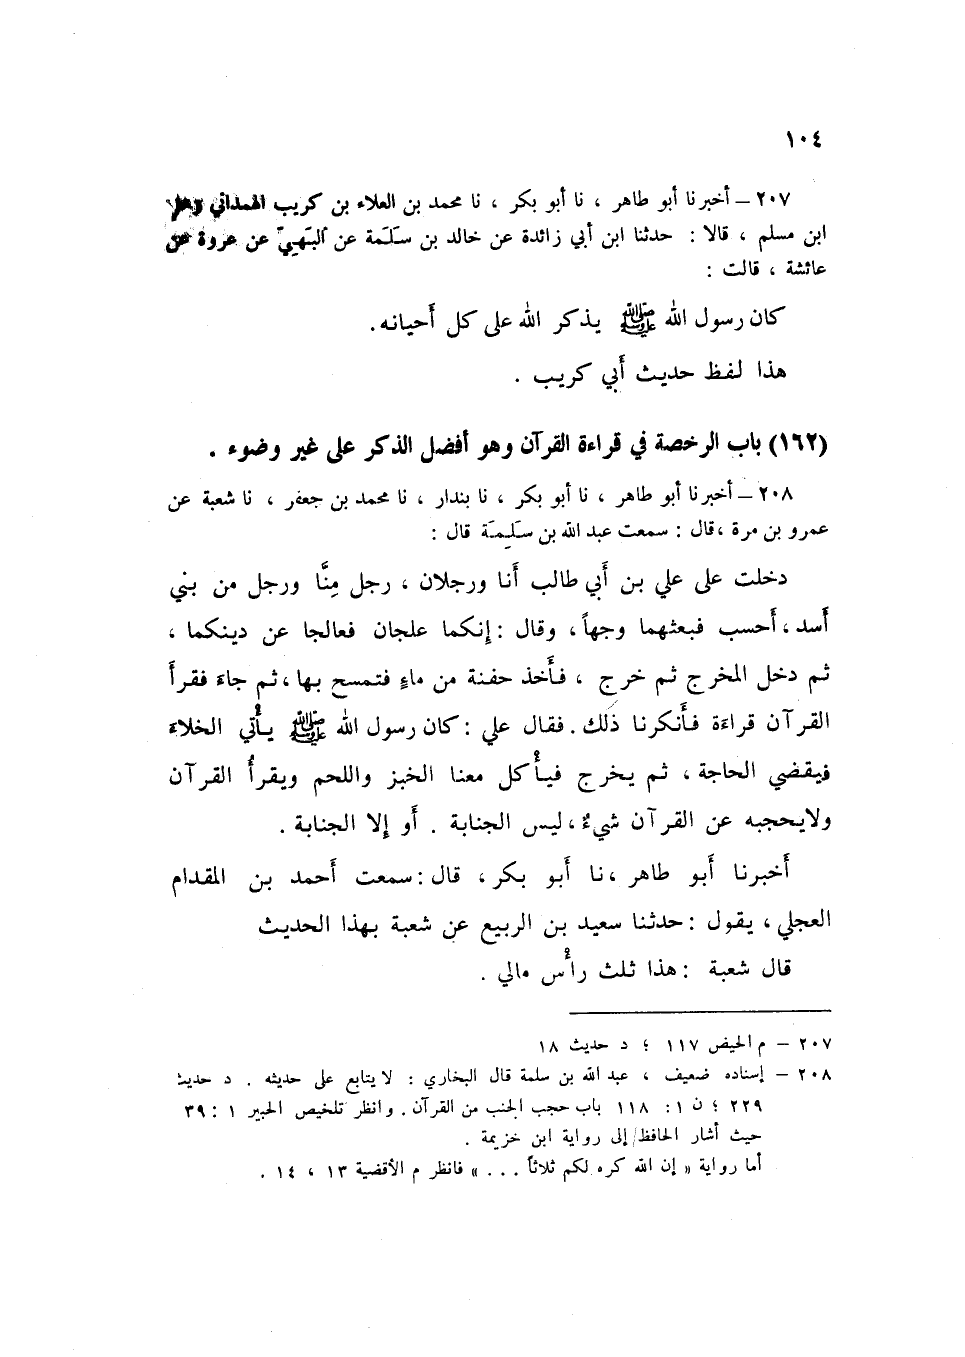 ١٠٤
٢٠٧ – أخبرنا أبو طاهر ، نا أبو بكر ، نا محمد بن العلاء بن كريب الهمداني
ابن مسلم ، قالا : حدثنا ابن أبي زائدة عن خالد بن سَلَمة عن البَهِيّ عن عروة عن
عائشة ، قالت :
كان رسول الله ﷺ يذكر الله على كل أحيانه.
هذا لفظ حديث أبي كريب .
(١٦٢) باب الرخصة في قراءة القرآن وهو أفضل الذكر على غير وضوء .
٢٠٨ – أخبرنا أبو طاهر ، نا أبو بكر ، نا بندار ، نا محمد بن جعفر ، نا شعبة عن
عمرو بن مرة ،قال : سمعت عبد الله بن سَلِمَة قال :
دخلت على علي بن أبي طالب أنا ورجلان ، رجل مِنَّا ورجل من بني
أسد ،أحسب فبعثهما وجهاً، وقال :إنكما علجان فعالجا عن دينكما ،
ثم دخل المخرج ثم خرج ، فأخذ حفنة من ماءٍ فتمسح بها ،ثم جاءَ فقرأَ
القرآن قراءة فأنكرنا ذلك. فقال علي :كان رسول الله ﷺ يأتي الخلاءَ
فيقضي الحاجة ، ثم يخرج فيأكل معنا الخبز واللحم ويقرأُ القرآن
ولايحجبه عن القرآن شيءٌ ،ليس الجنابة . أو إلا الجنابة .
أخبرنا أبو طاهر ،نا أبو بكر، قال :سمعت أحمد بن المقدام
العجلي ، يقول :حدثنا سعيد بن الربيع عن شعبة بهذا الحديث
قال شعبة :هذا ثلث رأس مالي .
٢٠٧ – م الحيض ١١٧ ؛ د حديث ١٨
٢٠٨ – إسناده ضعيف ، عبد الله بن سلمة قال البخاري : لا يتابع على حديثه . د حديث
٢٢٩ ؛ ن ١: ١١٨ باب حجب الجنب من القرآن. وانظر تلخيص الحبير ١ : ٣٩
حيث أشار الحافظ إلى رواية ابن خزيمة .
أما رواية « إن الله كره لكم ثلاثاً ... » فانظر م الأقضية ١٣ ، ١٤ .